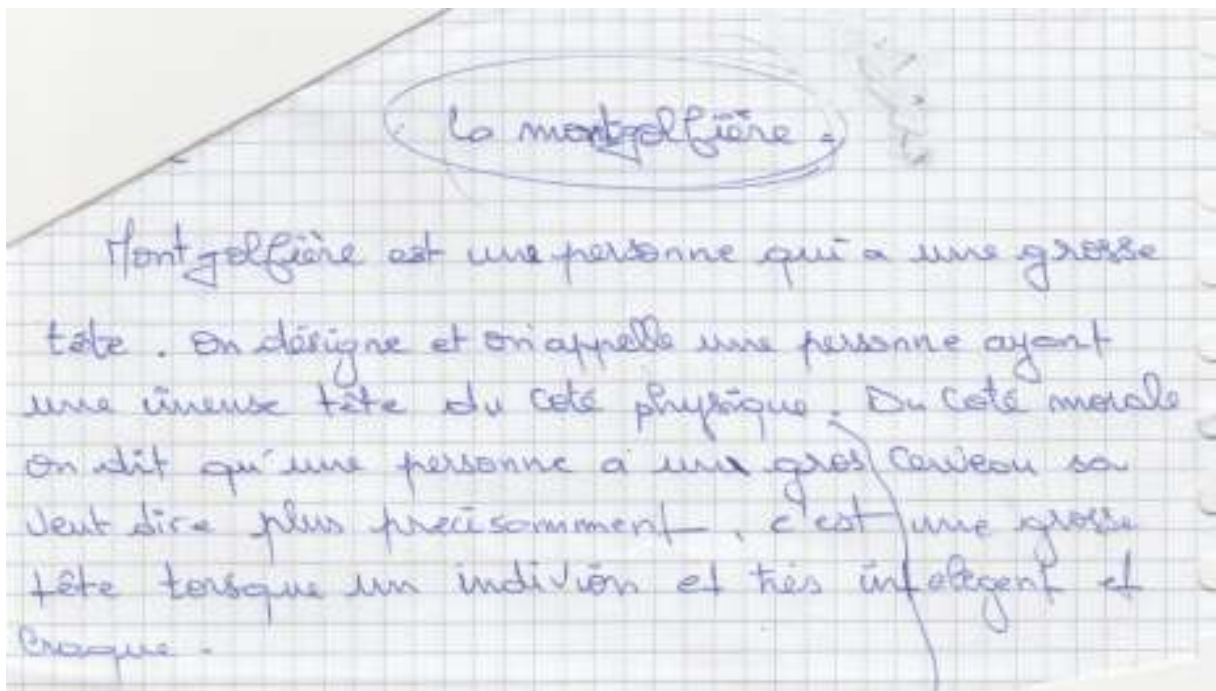 La montgolfière.
Montgolfière est une personne qui a une grosse
tête. On désigne et on appelle une personne ayant
une imense tête du coté physique. Du coté morale
on dit qu'une personne a un gros cerveau sa
veut dire plus precisomment, c'est une grosse
tête lorsque un individn et très intelegent et
craque.